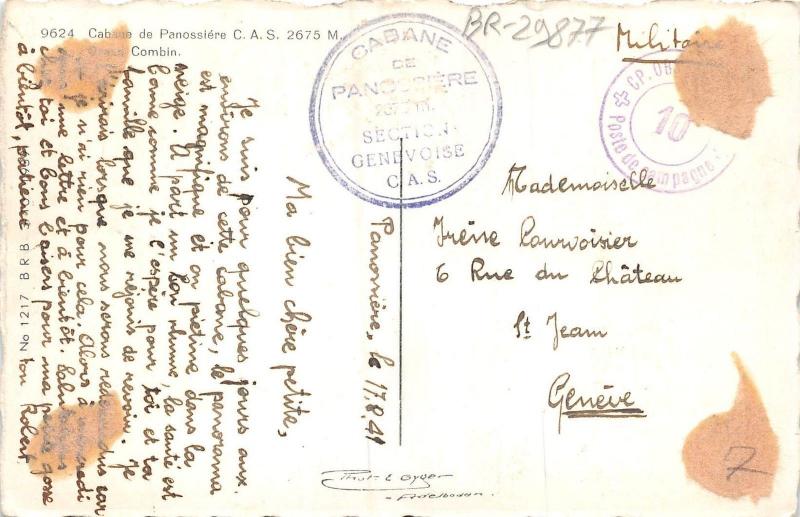 9624 Cabane de Panossière C. A. S. 2675 M.
Combin.
BR-29877
Militaire
CABANE
DE
PANOSSIÈRE
2675 m.
SECTION
GENEVOISE
C.A.S.
CP. OB
10
Poste de campagne
Panossière, le 17.8.41
Ma bien chère petite,
Je suis pour quelques jours aux
environs de cette cabane, le panorama
est magnifique et on piétine dans la
neige. A part un bon rhume, la santé est
bonne comme je l'espère pour toi et ta
famille que je me réjouis de revoir. Je
lorsque nous serons redescendus car
je n'ai rien pour cela. Alors à
une lettre et à bientôt.
toi et bons baisers pour ma gosse
à bientôt, ton Robert
Mademoiselle
Irène Courvoisier
6 Rue du Château
St Jean
Genève
7
Phot. E. Gyger
- Adelboden.
No. 1217 B R B